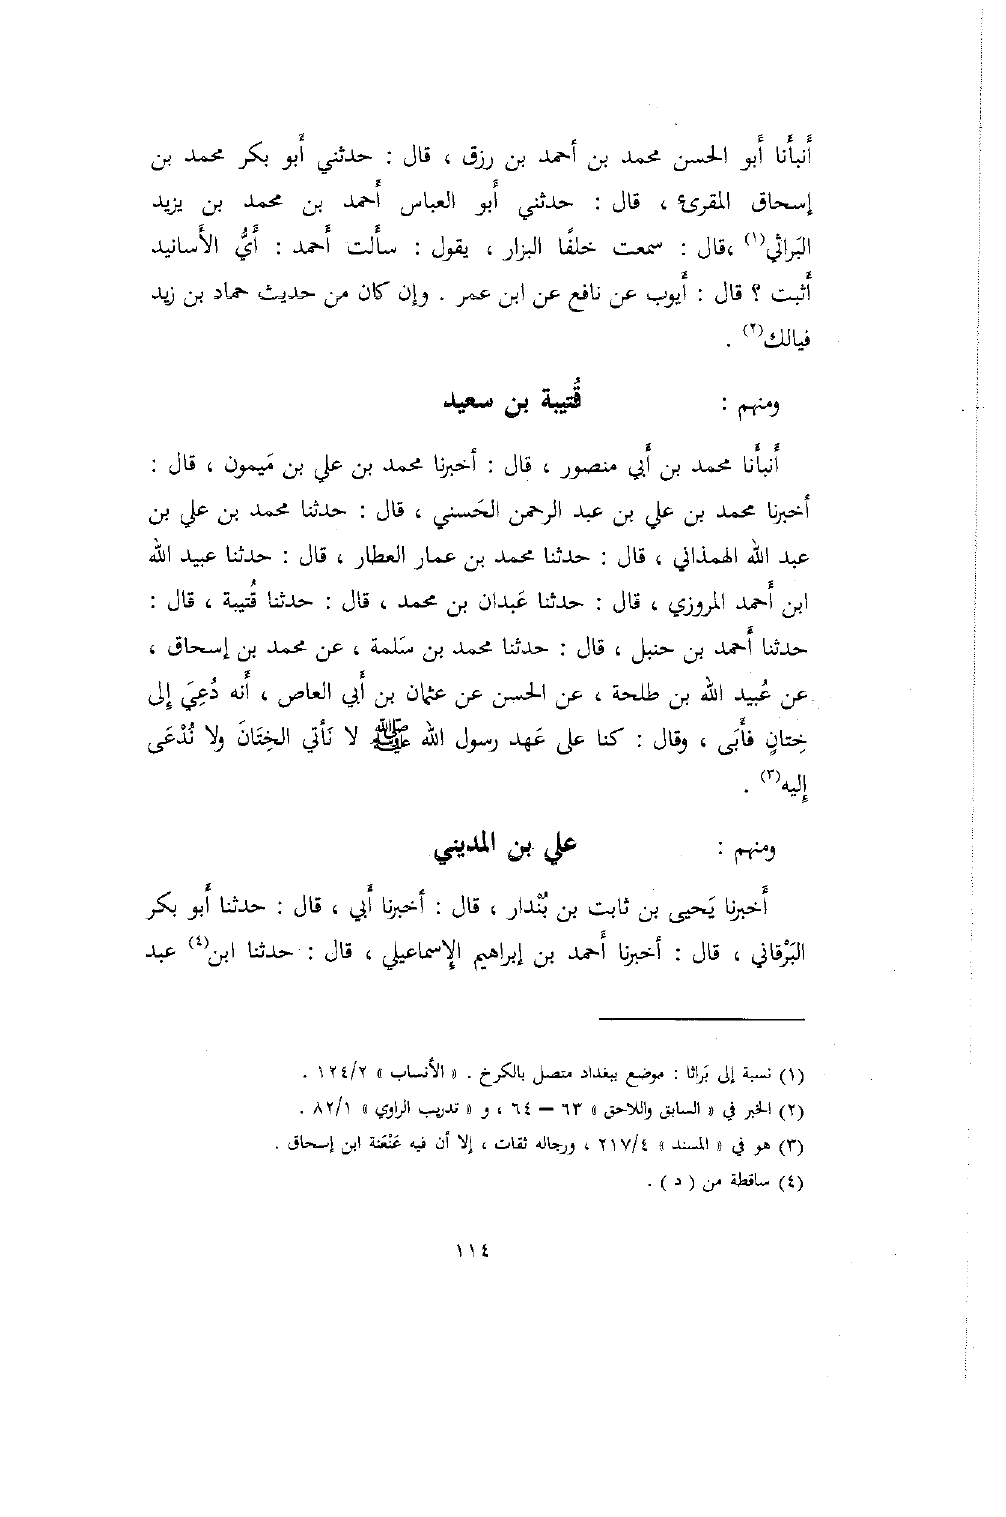 أَنبأَنا أَبو الحسن محمد بن أحمد بن رزق ، قال : حدثني أَبو بكر محمد بن
إسحاق المقرىء ، قال : حدثني أَبو العباس أَحمد بن محمد بن يزيد
البَراثي(١) ،قال : سمعت خلفًا البزار ، يقول : سأَلت أَحمد : أَيُّ الأَسانيد
أَثبت ؟ قال : أَيوب عن نافع عن ابن عمر . وإن كان من حديث حماد بن زيد
فيالك(٢) .
ومنهم : قُتيبة بن سعيد
أَنبأَنا محمد بن أَبي منصور ، قال : أخبرنا محمد بن علي بن مَيمون ، قال :
أخبرنا محمد بن علي بن عبد الرحمن الحَسني ، قال : حدثنا محمد بن علي بن
عبد الله الهمذاني ، قال : حدثنا محمد بن عمار العطار ، قال : حدثنا عبيد الله
ابن أَحمد المروزي ، قال : حدثنا عَبدان بن محمد ، قال : حدثنا قُتيبة ، قال :
حدثنا أَحمد بن حنبل ، قال : حدثنا محمد بن سَلمة ، عن محمد بن إسحاق ،
عن عُبيد الله بن طلحة ، عن الحسن عن عثمان بن أَبي العاص ، أَنه دُعِيَ إلى
خِتانٍ فأَبَى ، وقال : كنا على عَهد رسول الله ﷺ لا نَأتي الخِتَانَ ولا نُدْعَى
إِليه(٣) .
ومنهم : علي بن المديني
أَخبرنا يَحيى بن ثابت بن بُنْدار ، قال : أخبرنا أَبي ، قال : حدثنا أَبو بكر
البَرْقاني ، قال : أخبرنا أَحمد بن إبراهيم الإِسماعيلي ، قال : حدثنا ابن(٤) عبد
(١) نسبة إلى بَراثا : موضع ببغداد متصل بالكرخ . « الأَنساب » ١٢٤/٢ .
(٢) الخبر في « السابق واللاحق » ٦٣ – ٦٤ ، و « تدريب الراوي » ٨٢/١ .
(٣) هو في « المسند » ٢١٧/٤ ، ورجاله ثقات ، إلا أن فيه عَنْعَنة ابن إسحاق .
(٤) ساقطة من ( د ) .
١١٤